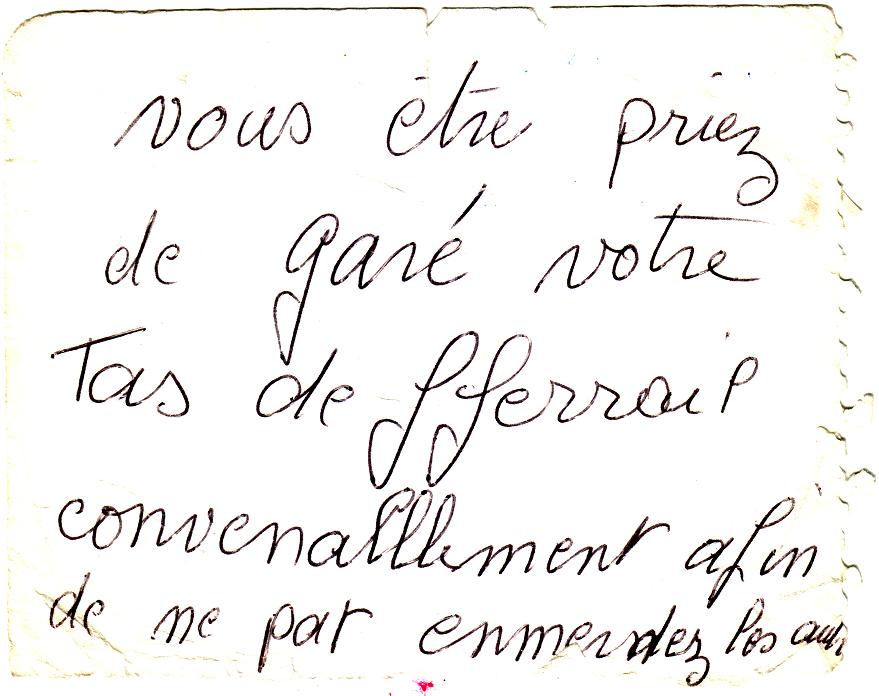 vous étre priez
de garé votre
Tas de fferrail
convenalllement afin
de ne pat enmerdez les autr